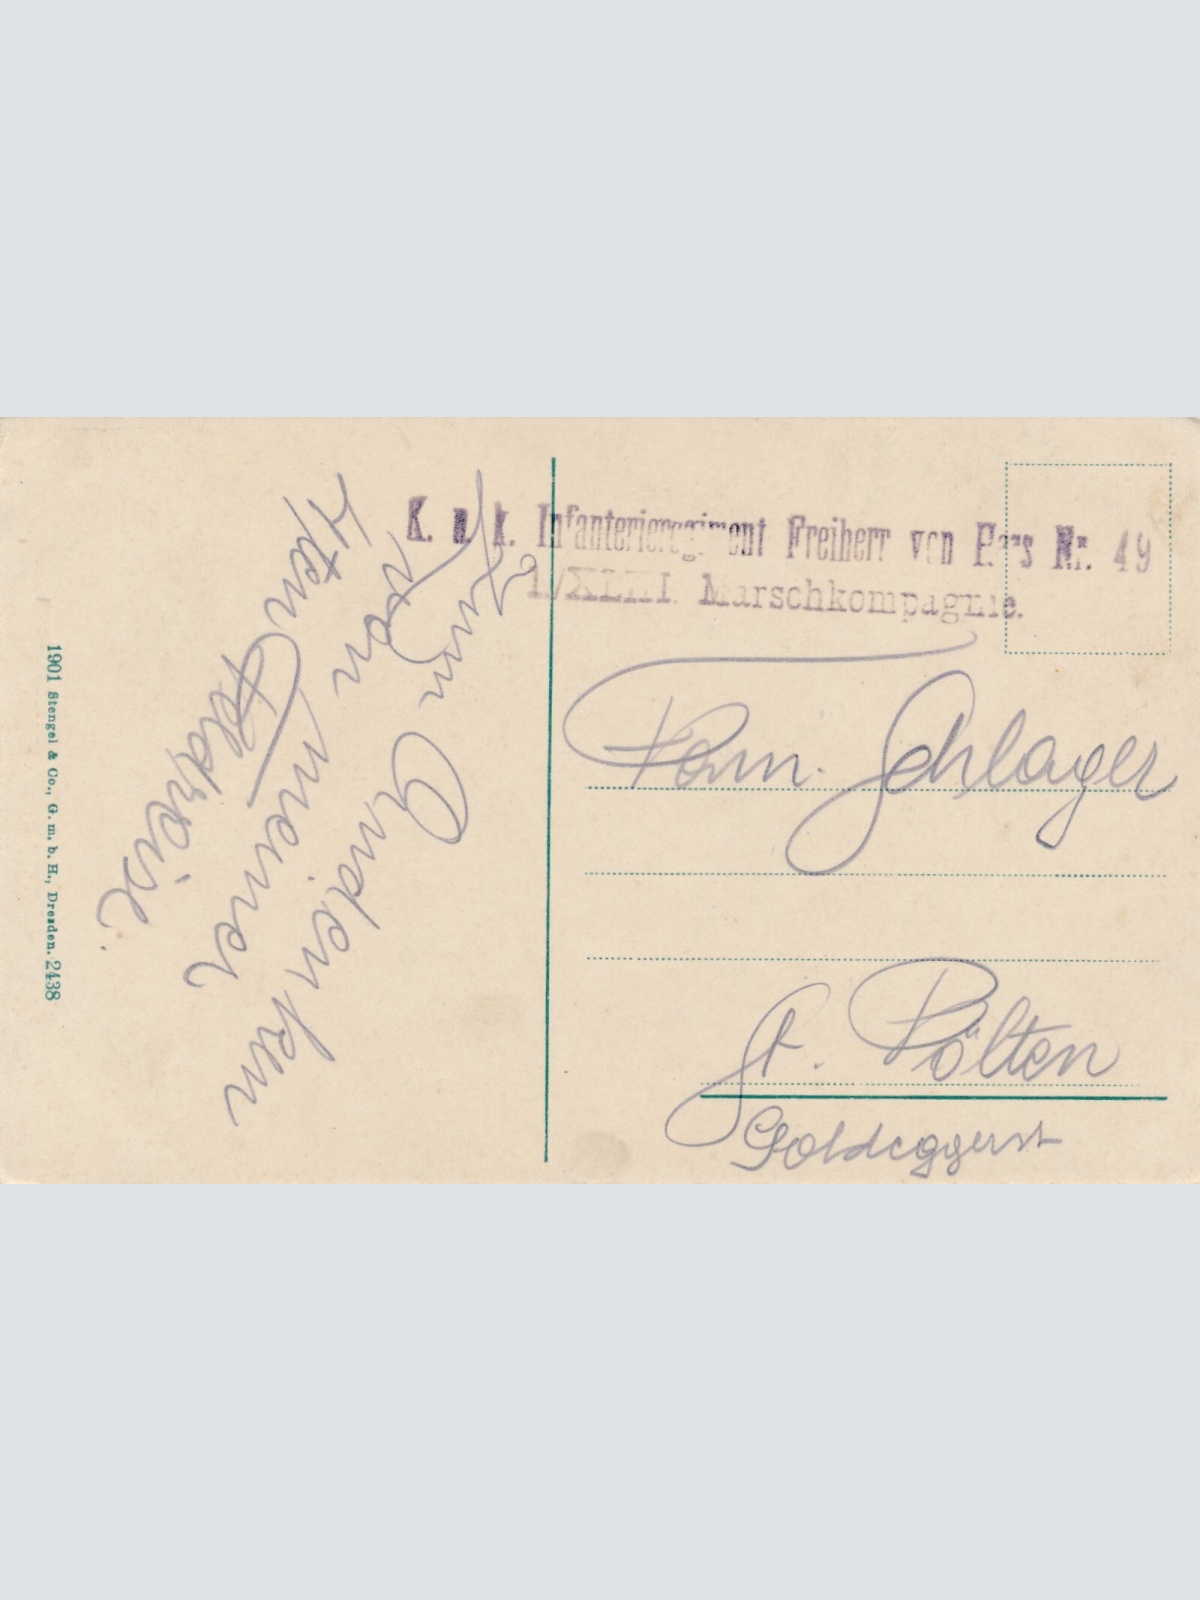 K. u. k. Infanterieregiment Freiherr von Nr. 49
1/XLIII. Marschkompagnie.
Zum Andenken
von meiner
4ten Feldreise.
Schlager
St. Pölten
Goldeggerst
1901 Stengel & Co., G. m. b. H., Dresden. 2438